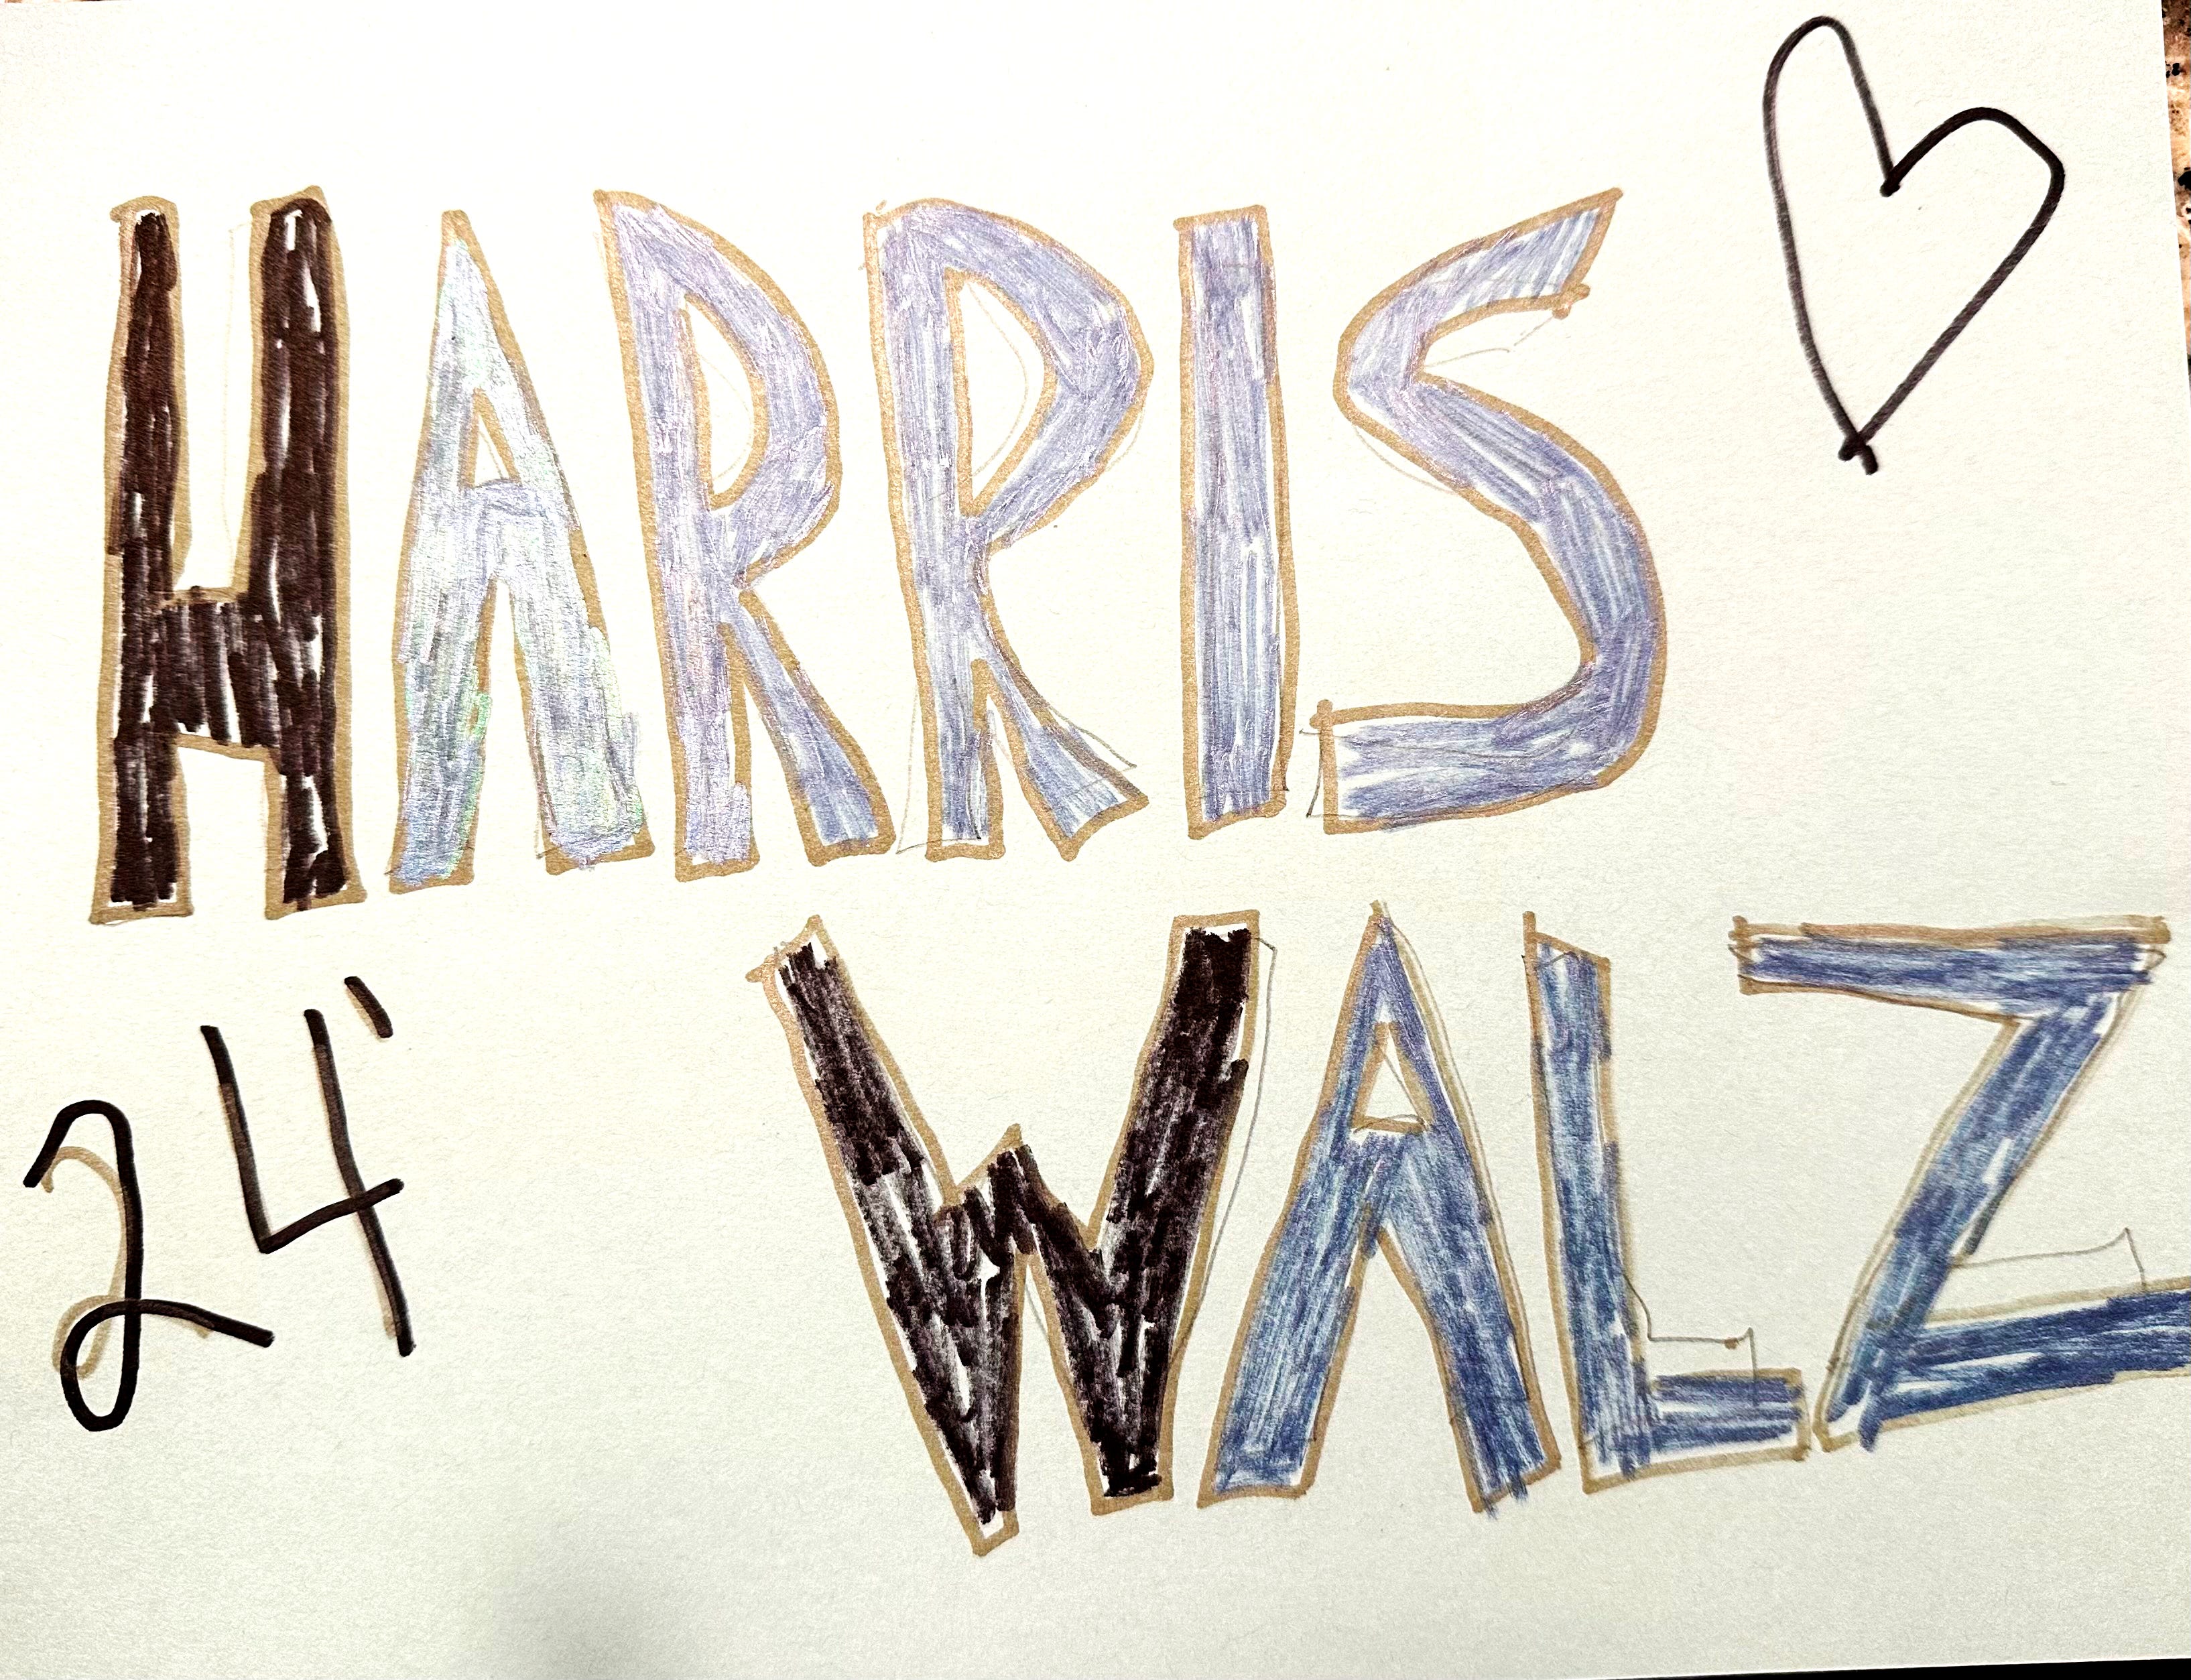 HARRIS
24' WALZ